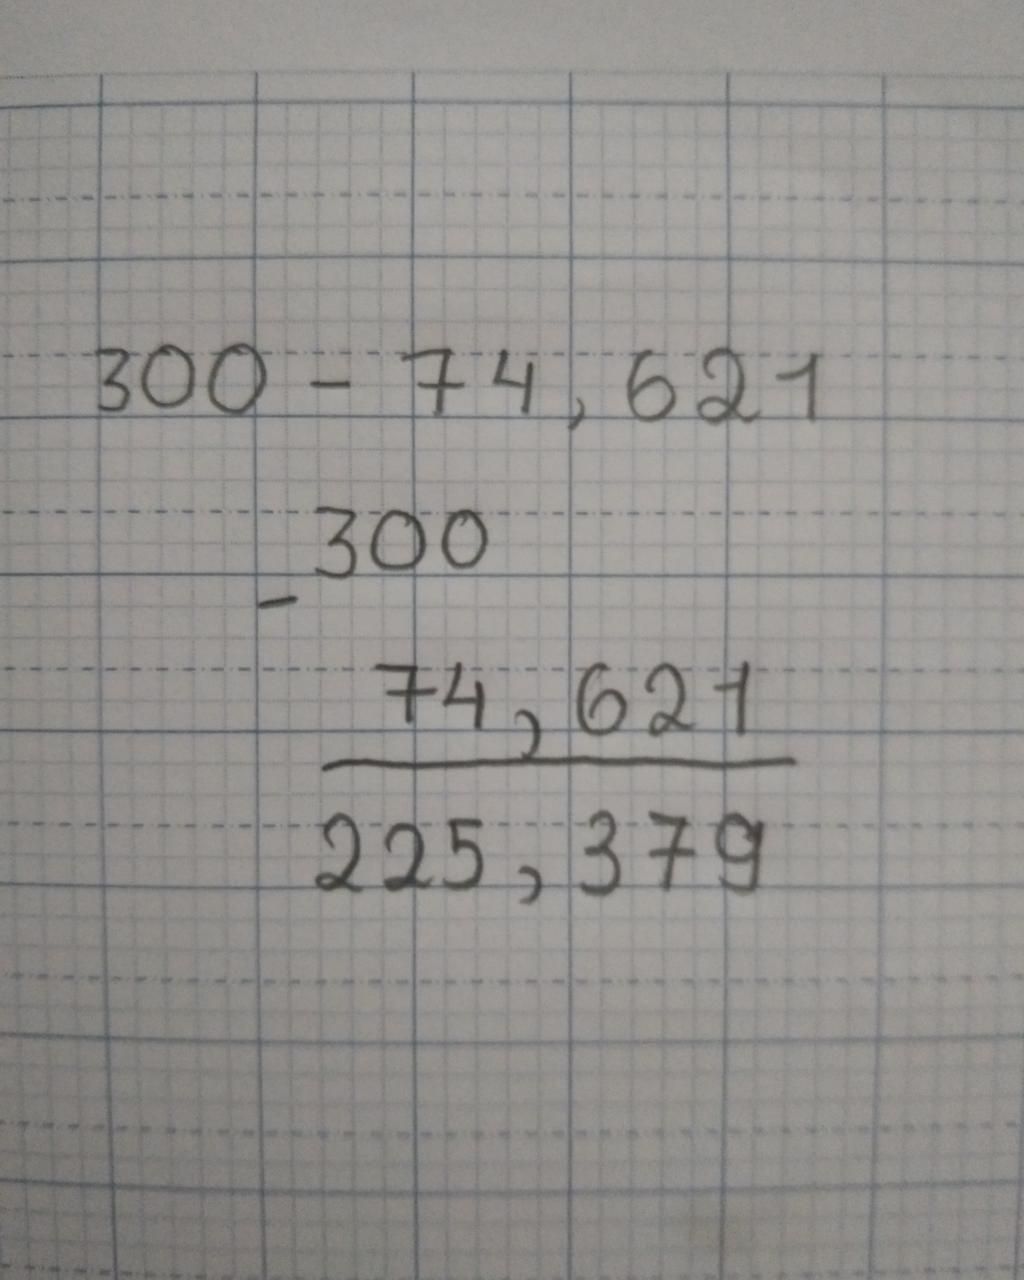 300 - 74,621
300
-
74,621
225,379